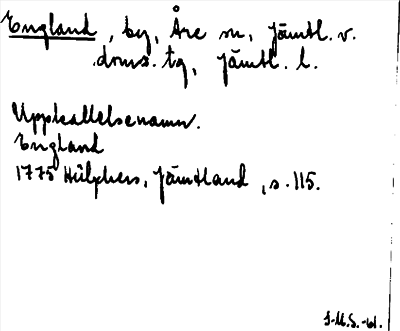 England, by, Åre sn, Jämtl. v.
doms. tg, Jämtl. l.
Uppkallelsenamn.
England
1775 Hülphers, Jämtland, s. 115.
J.M.S. -61.